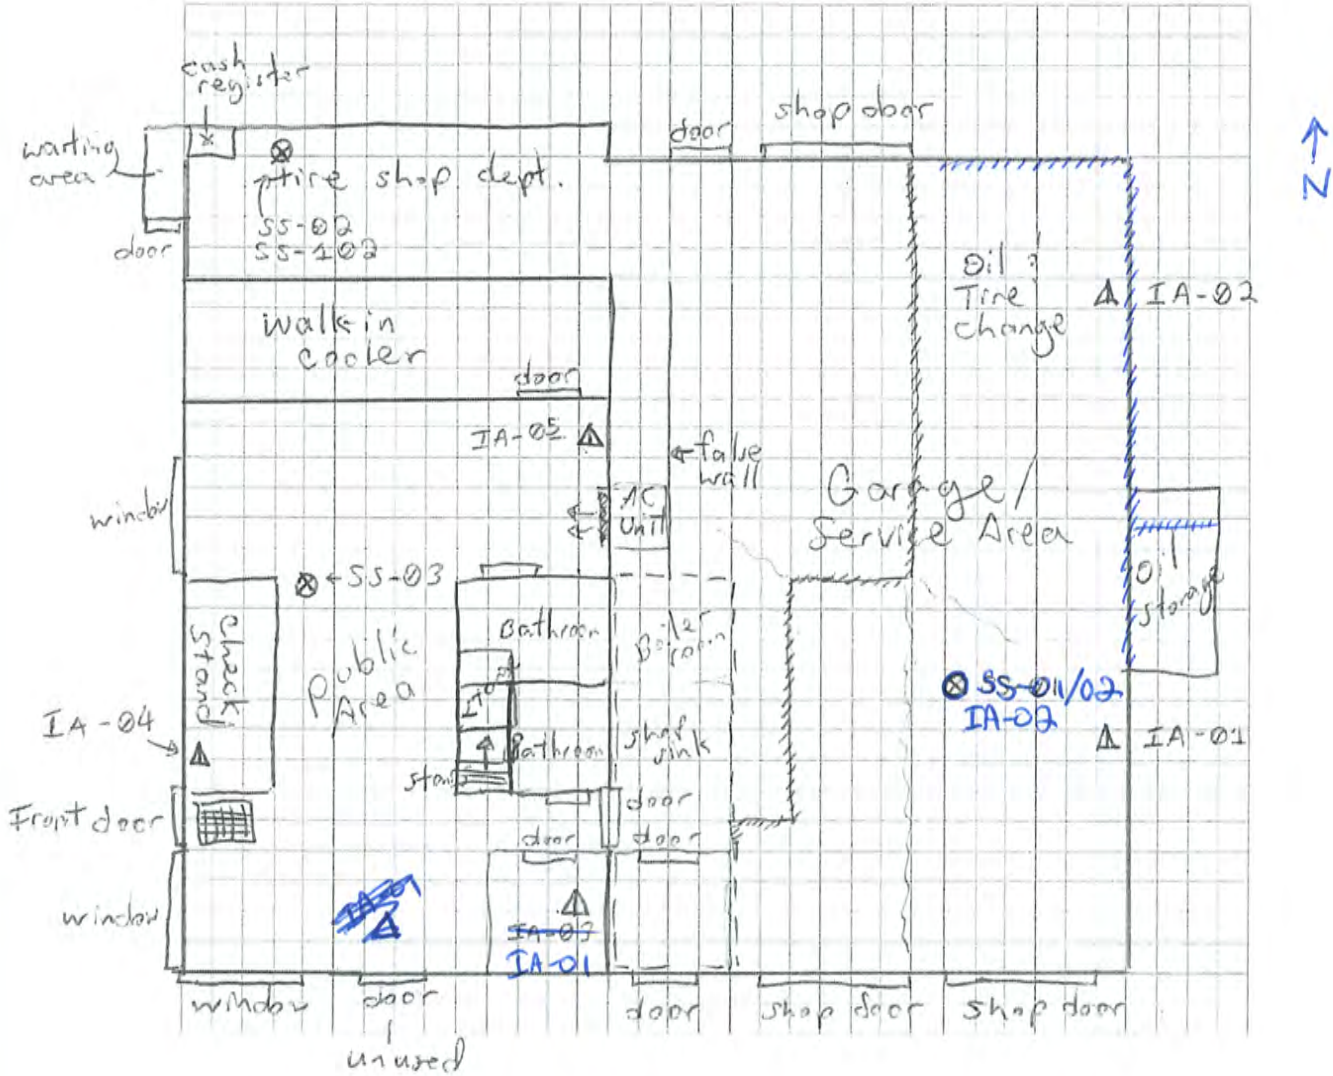 cash
register
waiting
area
door
tire shop dept.
SS-02
SS-102
door
shop door
N
walk-in
cooler
door
Oil &
Tire
change
IA-02
IA-05
false
wall
window
AC
Unit
Garage/
Service Area
Oil
storage
SS-03
check
stand
Public
Area
Bathroom
Boiler
room
IA-04
Bathroom
shop
sink
SS-01/02
IA-02
IA-01
Front door
door
door
door
window
IA-03
IA-01
window
door
unused
door
shop door
shop door